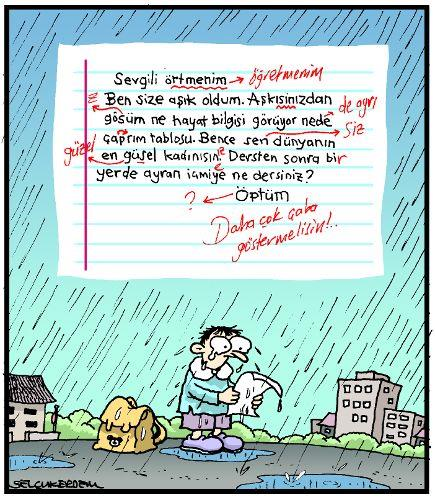 Sevgili örtmenim → öğretmenim
Ben size aşık oldum. Aşkısinızdan
gösüm ne hayat bilgisi görüyor nede de ayrı
çaprım tablosu. Bence sen dünyanın siz
güzel en güşel kadınısın. Dersten sonra bir
yerde ayran içmiye ne dersiniz?
? ← Öptüm
Daha çok çaba
göstermelisin!..
SELÇUK ERDEM